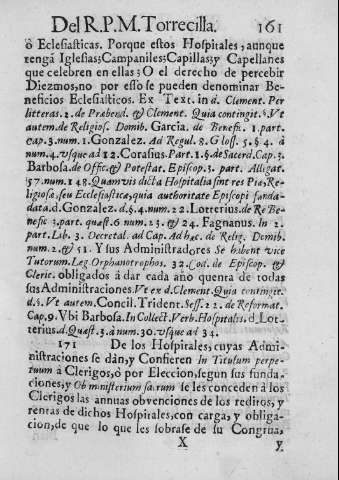 Del R.P.M. Torrecilla. 161
ò Eclesiasticas. Porque estos Hospitales, aunque
tengã Iglesias; Campaniles; Capillas; y Capellanes
que celebren en ellas; O el derecho de percebir
Diezmos, no por esso se pueden denominar Be-
neficios Eclesiásticos. Ex Text. in d. Clement. Per
litteras. 2. de Præbend. & Clement. Quia contingit. §. Vt
autem. de Religios. Domib. Garcia. de Benefi. 1. part.
cap. 3. num. 1. Gonzalez. Ad Regul. 8. Gloss. 5. §. 4. à
num. 4. vsque ad 12. Corasius. Part. 1. §. de Sacerd. Cap. 3.
Barbosa. de Offic. & Potestat. Episcop. 3. part. Alligat.
57. num. 148. Quamvis dicta Hospitalia sint res Pia, Re-
ligiosæ, seu Ecclesiastica, quia authoritate Episcopi funda-
data. d. Gonzalez. d. §. 4. num. 22. Lotterius. de Re Be-
nefic 3. part. quæst. 6 num. 23. & 24. Fagnanus. In 2.
part. Lib. 3. Decretal. ad Cap. Ad hæc. de Relig. Domib.
num. 2. & 51. Y sus Administradores Se habent vice
Tutorum. Leg. Orphanotrophos. 32. Cod. de Episcop. &
Cleric. obligados à dar cada año quenta de todas
sus Administraciones. Vt ex d. Clement. Quia contingit.
d. §. Vt autem. Concil. Trident. Sess. 22. de Reformat.
Cap. 9. Vbi Barbosa. In Collect. Verb. Hospitalis. d. Lot-
terius. d. Quæst. 3. à num. 30. vsque ad 34.
171 De los Hospitales, cuyas Admi-
nistraciones se dàn, y Confieren In Titulum perpe-
tuum à Clerigos, ò por Eleccion, segun sus funda-
ciones, y Ob ministerium sacrum se les conceden à los
Clerigos las annuas obvenciones de los reditos, y
rentas de dichos Hospitales, con carga, y obliga-
cion, de que lo que les sobrase de su Congrua,
X y